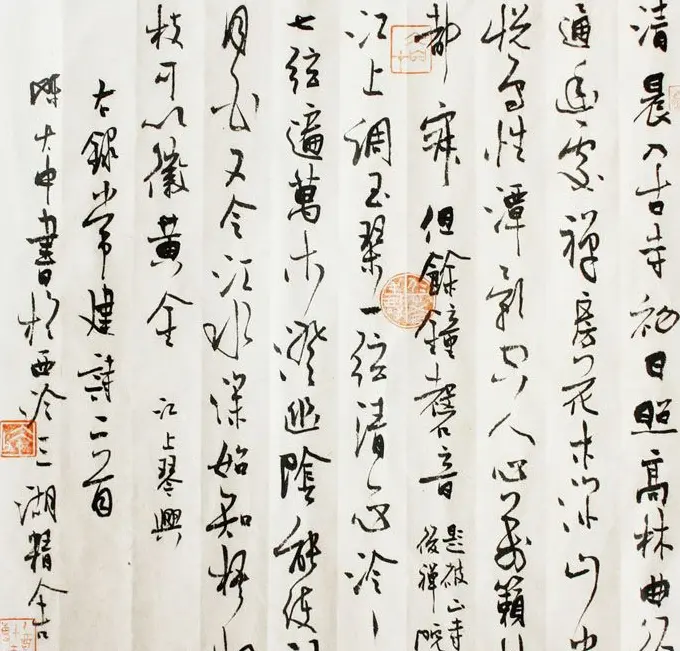 清晨入古寺初日照高林曲徑
通幽處禪房花木深山光
悅鳥性潭影空人心萬籟此
都寂但餘鐘磬音 題破山寺
後禪院
江上調玉琴一弦清一心泠泠
七弦遍萬木澄幽陰能使江
月白又令江水深始知梧桐
枝可以徽黃金 江上琴興
右錄常建詩二首
大中書於西泠三湖精舍